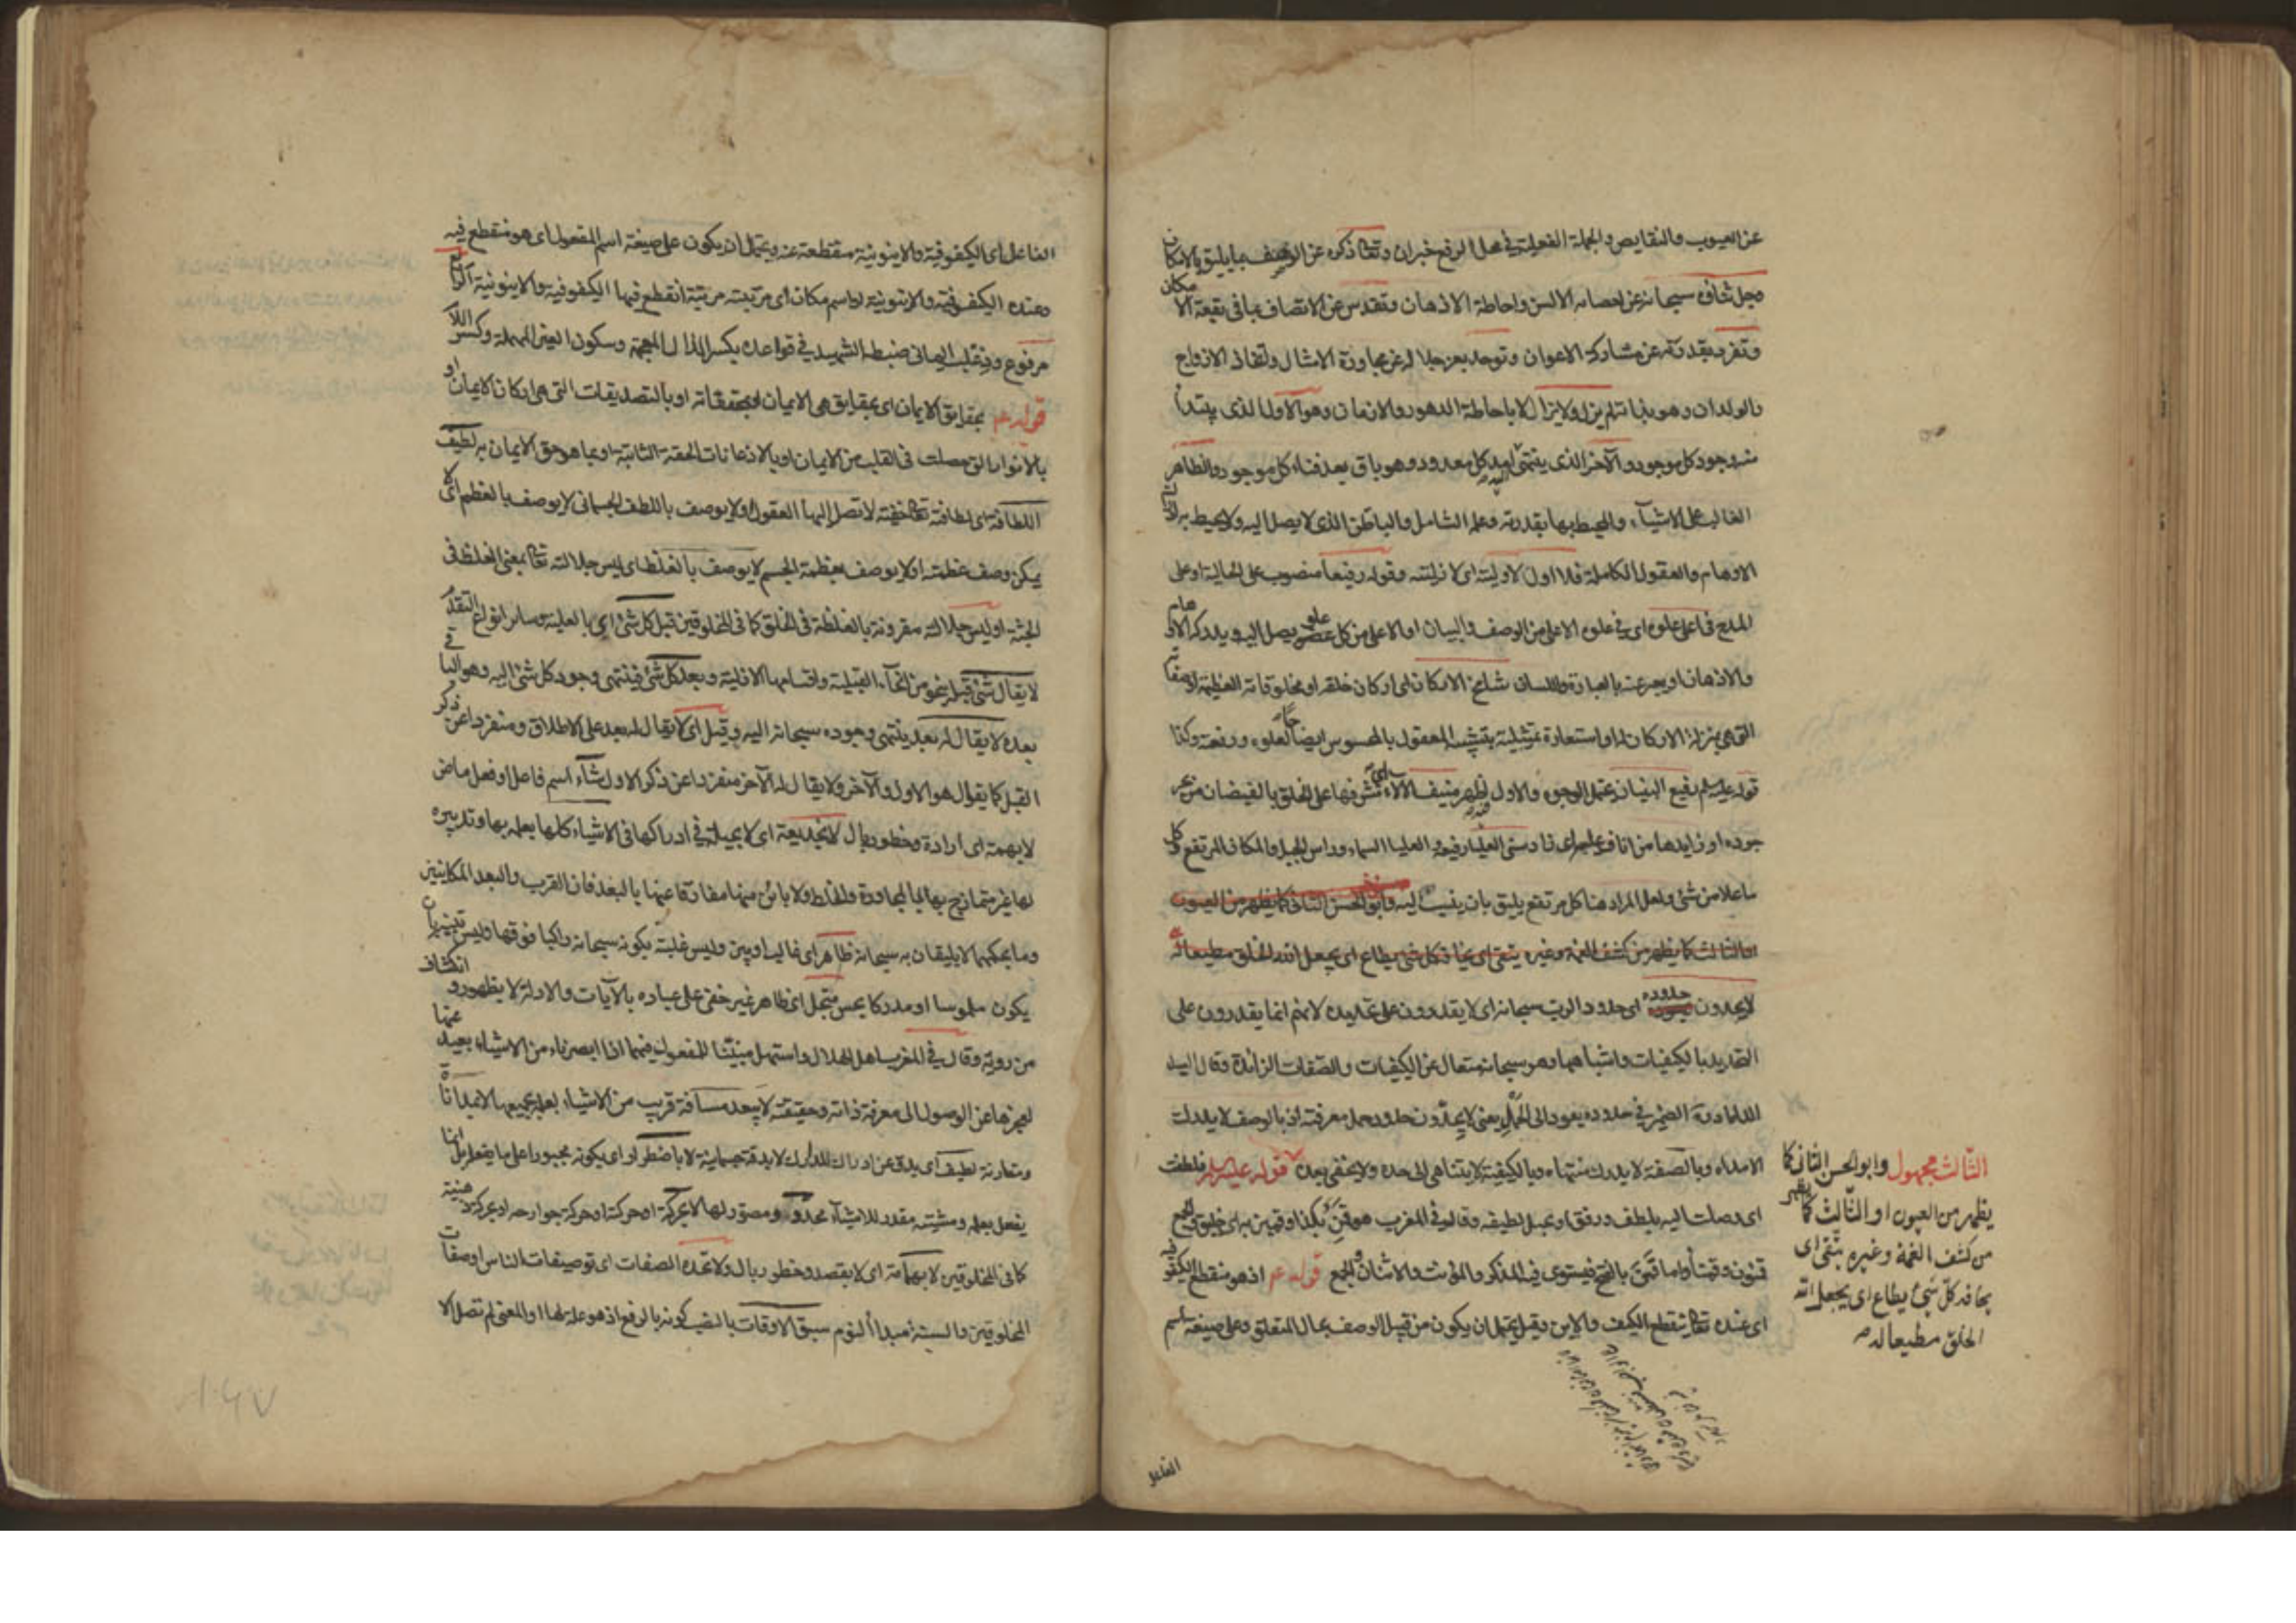 عن العيوب والنقايص والجملة الفعلية في محل الرفع خبران وتعالى ذكره عن الوصف بما يليق بالامكان
وجل شأنه سبحانه عن احصاء الالسن واحاطة الاذهان وتقدس عن الاتصاف بما في بقعة الامكان
وتفرد بقدرته عن مشاركة الاعوان وتوحد بعز جلاله عن مجاورة الامثال واتخاذ الازواج
والولدان وهو بذاته لم يزل ولا يزال لا باحاطة الدهور والازمان وهو الاول الذي يبتدأ
منه وجود كل موجود والآخر الذي ينتهي اليه امد كل معدود وهو باق بعد فناء كل موجود والظاهر
الغالب على الاشياء والمحيط بها بقدرته وعلمه الشامل والباطن الذي لا يصل اليه ولا يحيط به
الاوهام والعقول الكاملة فلا اول لاوليته اي لازليته وقوله رفيعا منصوب على الحالية او على
المدح في اعلى علوه اي في علوه الاعلى من الوصف والبيان او الاعلى من كل علو يصل اليه ويدركه الاوهام
والاذهان او يعبر عنه بالعبارة واللسان شامخ الاركان اي اركان خلقه او مخلوقاته العظيمة او صفاته
التي هي بمنزلة الاركان له او استعارة تمثيلية بتشبيه المعقول بالمحسوس ايضاحا لعلوه ورفعته وكذا
قوله عليه السلم رفيع البنيان يحتمل الوجوه والاول اظهر منيف الآلاء اي مشرفها على الخلق بالفيضان من بحر
جوده او زايدها من اناف عليه اي زاد سني العلياء رفيعه والعلياء السماء وراس الجبل والمكان المرتفع وكل
ما علا من شئ ولعل المراد هنا كل مرتفع يليق بان ينسب اليه وابو الحسن الثاني كما يظهر من العيون
او الثالث كما يظهر من كشف الغمة وغيره يتقى اي يخافه كل شئ يطاع اي يجعل الله الخلق مطيعا له
لا يحدون حدوده اي حدود الرب سبحانه اي لا يقدرون على تحديده لانهم انما يقدرون على
التحديد بالكيفيات واشباهها وهو سبحانه متعال عن الكيفيات والصفات الزائدة وقال السيد
الداماد ره الضمير في حدوده يعود الى الحمل يعني لا يحدون حدود حمل معرفته اذ بالوصف لا يدرك
الامداء وبالصفة لا يدرك منتهاه وبالكيفية لا يتناهى الى حده ولا يخفى بعده قوله عليه السلم فلطفت
اي وصلت اليه بلطف ورفق او بحيل لطيفة وقال في المغرب هو قمن بكذا وقمين به اي خليق والجمع
قمنون وقمناء واما قمن بالفتح فيستوي فيه المذكر والمؤنث والاثنان والجمع قوله عم اذ هو منقطع الكيفوفية
اي عنده تعالى ينقطع الكيف والاين وقيل يحتمل ان يكون من قبيل الوصف بحال المتعلق وعلى صيغة اسم
الثالث مجهول وابو الحسن الثاني كما
يظهر من العيون او الثالث كما يظهر
من كشف الغمة وغيره يتقى اي
يخافه كل شئ يطاع اي يجعل الله
الخلق مطيعا له
الفاعل
الفاعل اي الكيفوفية والاينونية منقطعة عنه ويحتمل ان يكون على صيغة اسم المفعول اي هو منقطع فيه
وعنده الكيفوفية والاينونية او اسم مكان اي مرتبته مرتبة انقطع فيها الكيفوفية والاينونية
مرفوع وذعلب اليماني ضبطه الشهيد في قواعده بكسر الذال المعجمة وسكون العين المهملة وكسر اللام
قوله عم بحقايق الايمان اي بحقايق هي الايمان او بتصديقات التي هي اركان الايمان او
بالانوار التي حصلت في القلب من الايمان او بالاذعانات الحقة الثابتة او بما هو حق الايمان به لطيف
اللطافة اي لطافته تعالى خفية لا تصل اليها العقول ولا يوصف باللطف الجسماني لا يوصف بالعظم اي لا
يمكن وصف عظمته او لا يوصف بعظمة الجسم لا يوصف بالغلظ اي ليس جلالته تعالى بمعنى الغلظ في
الجثة او ليس جلالته مقرونة بالغلظة في الخلق كما في المخلوقين قبل كل شئ اي بالعلية وساير انواع التقدم
لا يقال شئ قبله بنحو من انحاء القبلية واقسامها الازلية وبعد كل شئ فينتهي وجود كل شئ اليه وهو الباقي
بعده لا يقال له بعد ينتهي وجوده سبحانه اليه وقيل اي لا يقال له بعد على الاطلاق ومنفردا عن ذكر
القبل كما يقال هو الاول والآخر ولا يقال له الآخر منفردا عن ذكر الاول شاء اسم فاعل او فعل ماض
لا بهمة اي ارادة وخطور بال لا بخديعة اي لا بحيلة في ادراكها في الاشياء كلها بعلمه بها وتدبيره
لها غير متمازج بها بالمجاورة والخلط ولا بائن منها مفارقا عنها بالبعد فان القرب والبعد المكانيين
وما يحكمهما لا يليقان به سبحانه ظاهر اي غالب او بين وليس غلبته بكونه سبحانه راكبا فوقها وليس تبينه بان
يكون ملموسا او مدركا بحس متجل اي ظاهر غير خفي على عباده بالآيات والادلة لا بظهور وانكشاف
من رؤية وقال في المغرب اهل الهلال واستهل مبنيا للمفعول فيهما اذا ابصر ناء من الاشياء بعيد عنها
لعجزها عن الوصول الى معرفة ذاته وحقيقته لا ببعد مسافة قريب من الاشياء بعلمه بجميعها لا بمداناة
ومقارنة لطيف اي يدق عن ادراك المدارك لا بدقة جسمانية لا باضطرار اي بكونه مجبورا على ما يفعل بل انما
يفعل بعلمه ومشيته مقدر للاشياء محدد ومصور لها لا بحركة او حركة جوارحه او بحركة ذهنية
كما في المخلوقين لا بهمامة اي لا بقصد وخطور بال ولا تحده الصفات اي توصيفات الناس او صفات
المخلوقين والسنة مبدأ النوم سبق الاوقات بالنصب كونه بالرفع اذ هو علة لها او المعنى لم تصل الا